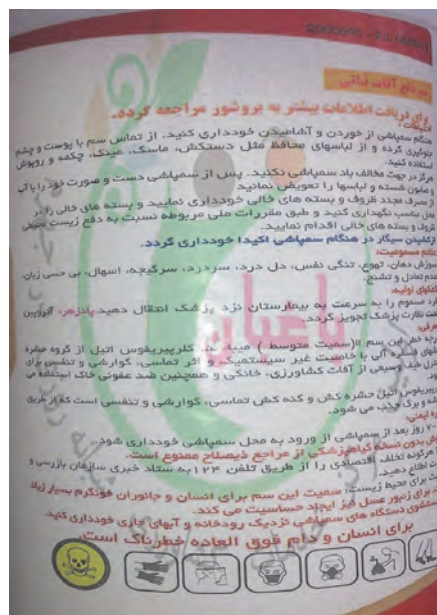 سم دفع آفات نباتی
برای دریافت اطلاعات بیشتر به بروشور مراجعه کرده.
احتیاطات:
هنگام سمپاشی از خوردن و آشامیدن خودداری کنید. از تماس سم با پوست و چشم
جلوگیری کرده و از لباسهای محافظ مثل دستکش، ماسک، عینک، چکمه و روپوش
استفاده کنید.
هرگز در جهت مخالف باد سمپاشی نکنید. پس از سمپاشی دست و صورت خود را با آب
و صابون شسته و لباسها را تعویض نمائید
از مصرف مجدد ظروف و بسته های خالی خودداری نمایید و بسته های خالی را در
محل مناسب نگهداری کنید و طبق مقررات ملی مربوطه نسبت به دفع زیست محیطی
ظروف و بسته های خالی اقدام نمایید.
از کشیدن سیگار در هنگام سمپاشی اکیدا خودداری گردد.
علائم مسمومیت:
سوزش دهان، تهوع، تنگی نفس، دل درد، سردرد، سرگیجه، اسهال، بی حسی زبان
عدم تعادل و تشنج.
کمکهای اولیه:
فرد مسموم را به سرعت به بیمارستان نزد پزشک انتقال دهید پادزهر: آتروپین
تحت نظارت پزشک تجویز گردد.
معرفی:
درجه خطر این سم II(سمیت متوسط) میباشد. کلرپیریفوس اتیل از گروه حشره
کشهای فسفره آلی با خاصیت غیر سیستمیک و اثر تماسی، گوارشی و تنفسی برای
کنترل طیف وسیعی از آفات کشاورزی، خانگی و همچنین ضد عفونی خاک استفاده می
کلرپیریفوس اتیل حشره کش و کنه کش تماسی، گوارشی و تنفسی است که از طریق
و برگ جذب می شود.
۷ روز بعد از سمپاشی از ورود به محل سمپاشی خودداری شود.
بدون نسخه گیاهپزشکی از مراجع ذیصلاح ممنوع است.
هرگونه تخلف اقتصادی را از طریق تلفن ۱۲۴ به ستاد خبری سازمان بازرسی و
اطلاع دهید.
برای محیط زیست: سمیت این سم برای انسان و جانوران خونگرم بسیار زیاد
برای زنبور عسل نیز ایجاد حساسیت می کند.
شستشوی دستگاه های سمپاشی نزدیک رودخانه و آبهای جاری خودداری کنید.
برای انسان و دام فوق العاده خطرناک است.
باغبان